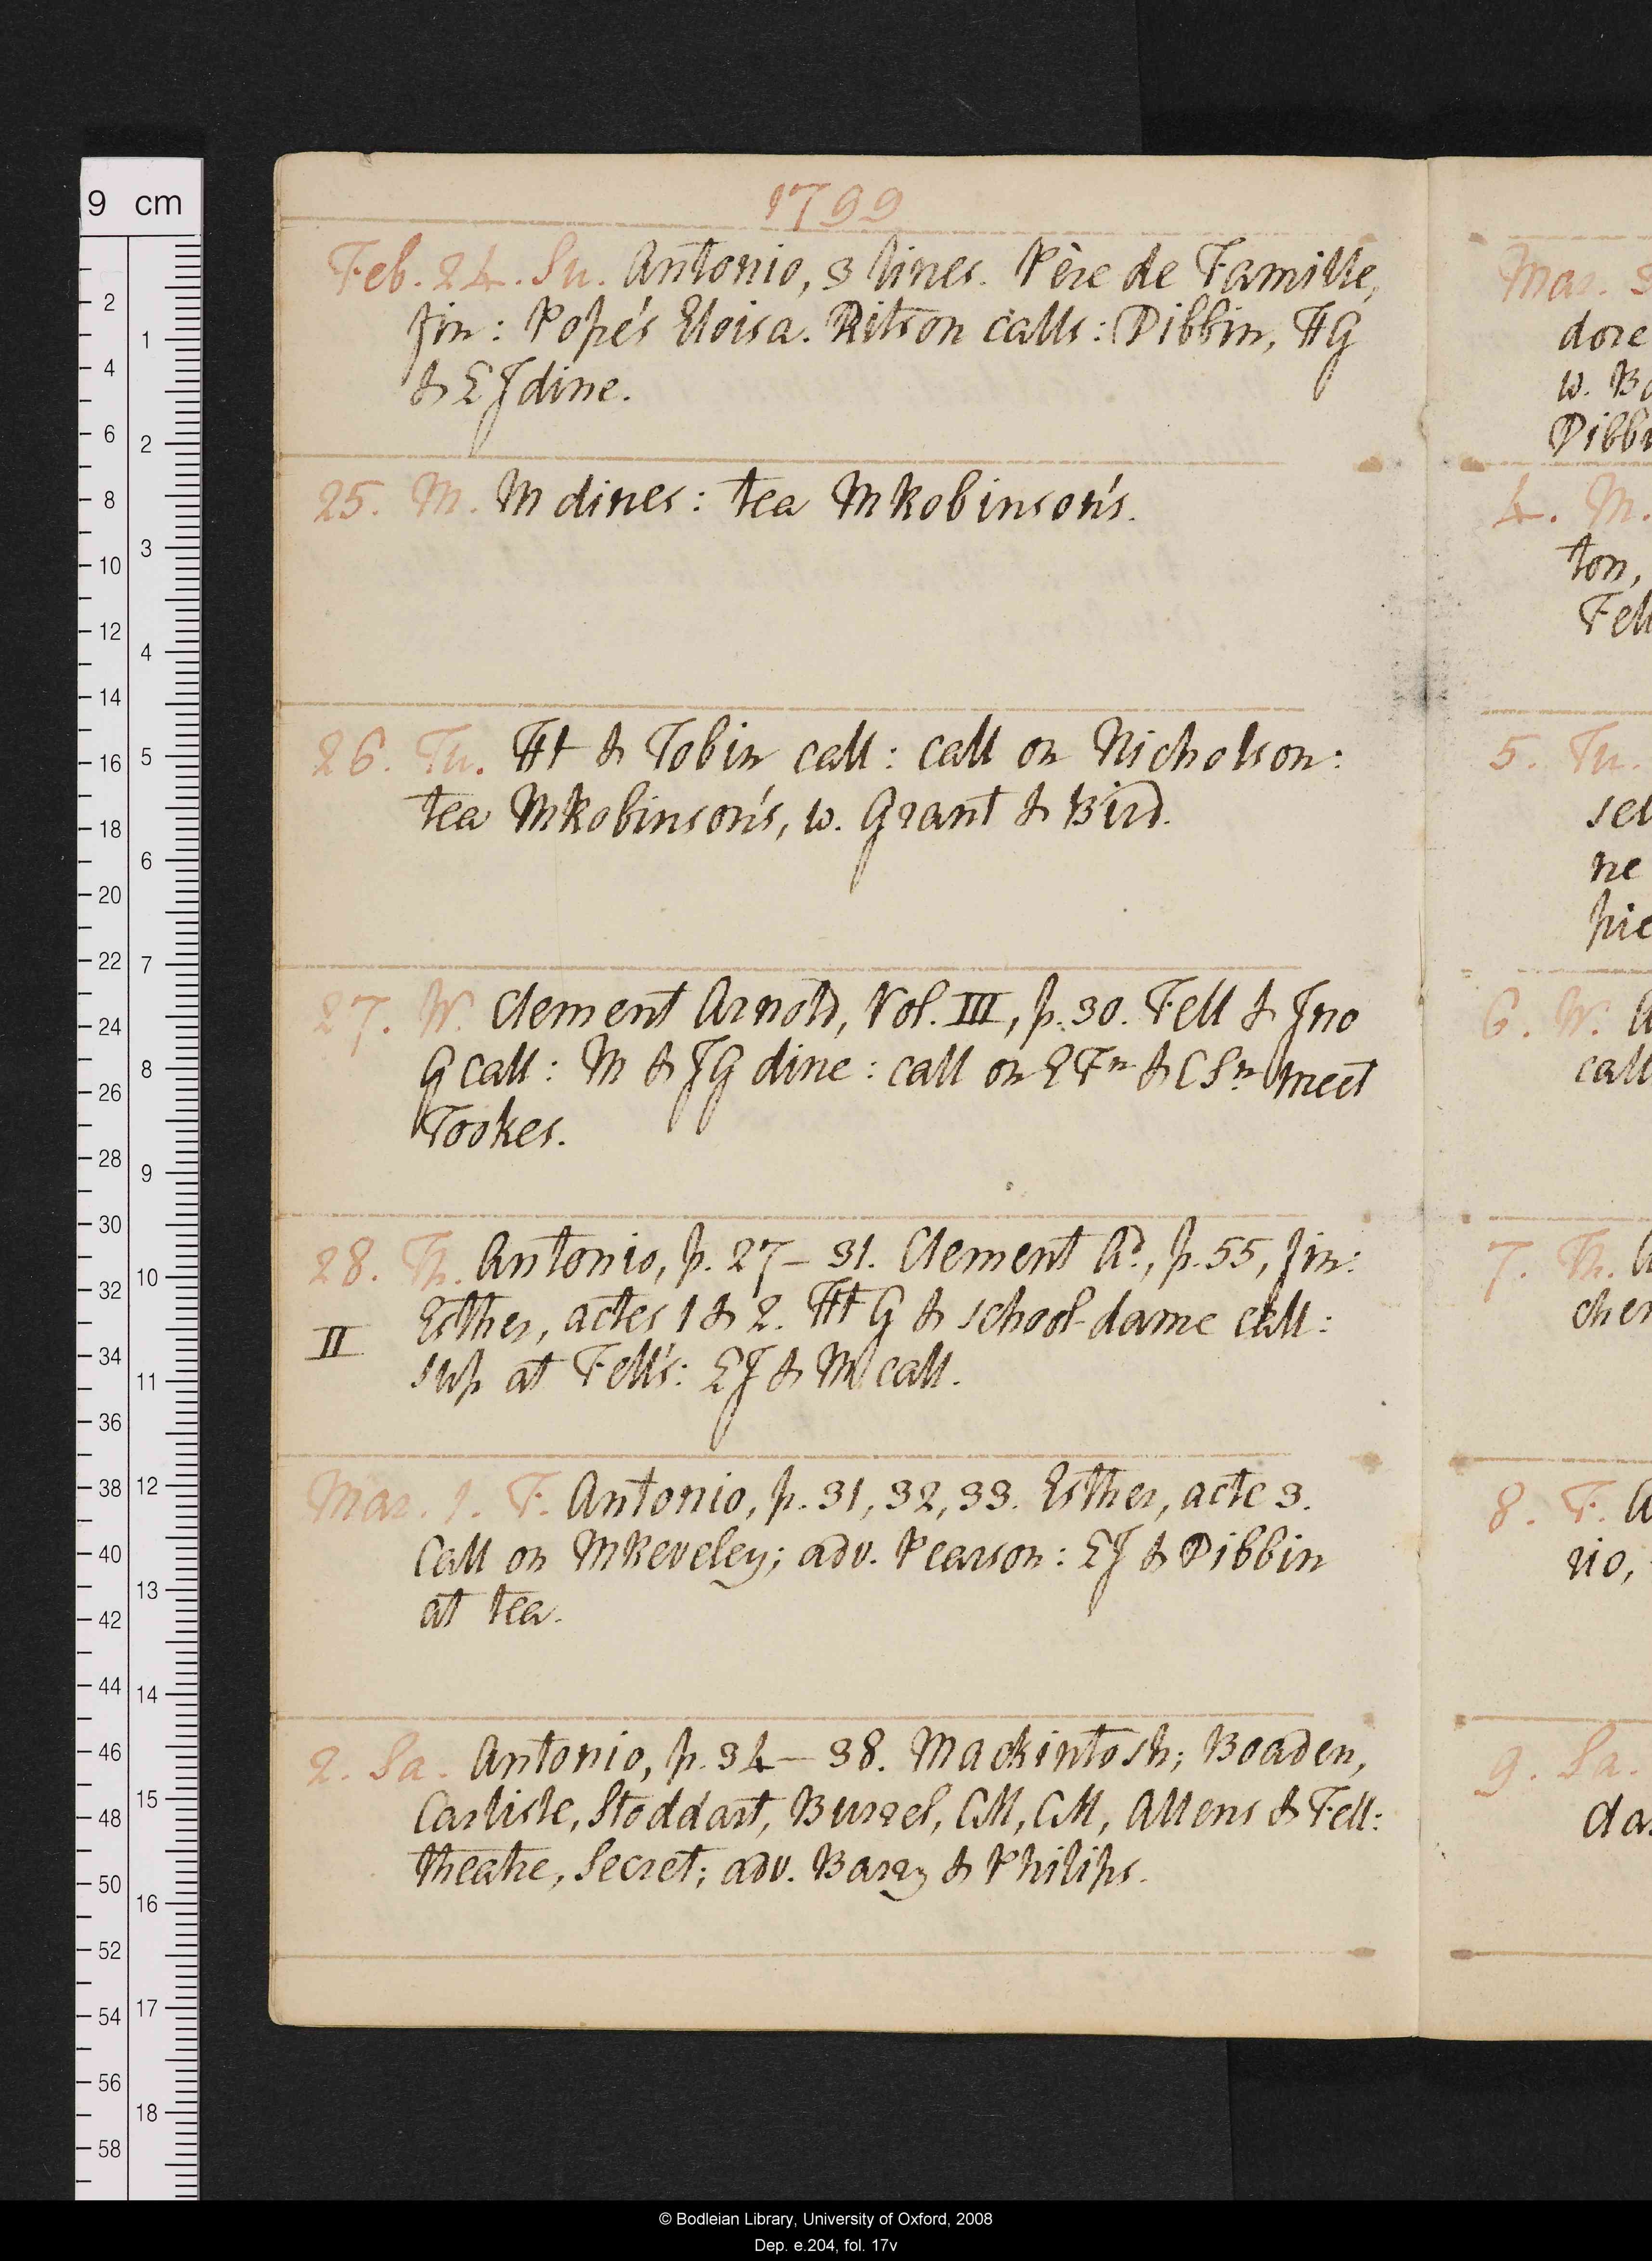 1799
Feb. 24. Su. Antonio, 3 lines. Père de Famille,
fin: Pope's Eloisa. Ritson calls: Dibbin, HG
& EJ dine.
25. M. M dines: tea MRobinson's.
26. Tu. Ht & Tobin call: call on Nicholson:
tea MRobinson's, w. Grant & Bird.
27. W. Clement Arnold, Vol. III, p. 30. Fell & Jno
G call: M & JG dine: call on EFn & CSn meet
Tookes.
28. Th. Antonio, p. 27–31. Clement Ad, p. 55, fin:
II Esther, actes 1 & 2. Ht G & school-dame call:
sup at Fell's: EJ & M call.
Mar. 1. F. Antonio, p. 31, 32, 33. Esther, acte 3.
Call on MReveley; adv. Pearson: EJ & Dibbin
at tea.
2. Sa. Antonio, p. 34–38. Mackintosh; Boaden,
Carlisle, Stoddart, Burrel, CM, CM, Allens & Fell:
theatre, Secret; adv. Barry & Philips.
Mar. 3
dore
w. B
Dibb
4. M.
ton,
Fell
5. Tu.
sel
ne
pie
6. W. A
call
7. Th. A
cher
8. F. A
rio,
9. Sa.
da
9 cm
2
4
6
8
10
12
14
16
18
20
22
24
26
28
30
32
34
36
38
40
42
44
46
48
50
52
54
56
58
1
2
3
4
5
6
7
8
9
10
11
12
13
14
15
16
17
18
© Bodleian Library, University of Oxford, 2008
Dep. e.204, fol. 17v